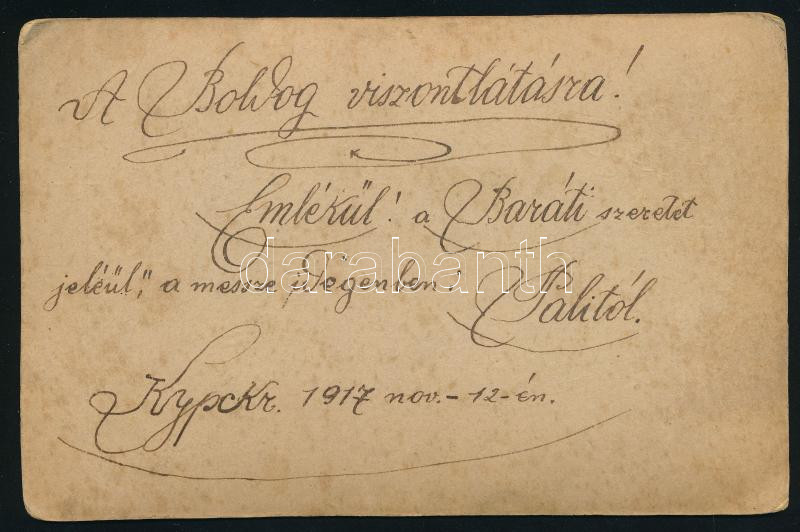 A Boldog viszontlátásra!
Emlékül! a Baráti szeretet
jeléül," a messze idegenben!
Palitól.
Kypckr. 1917 nov.- 12-én.
darabanth